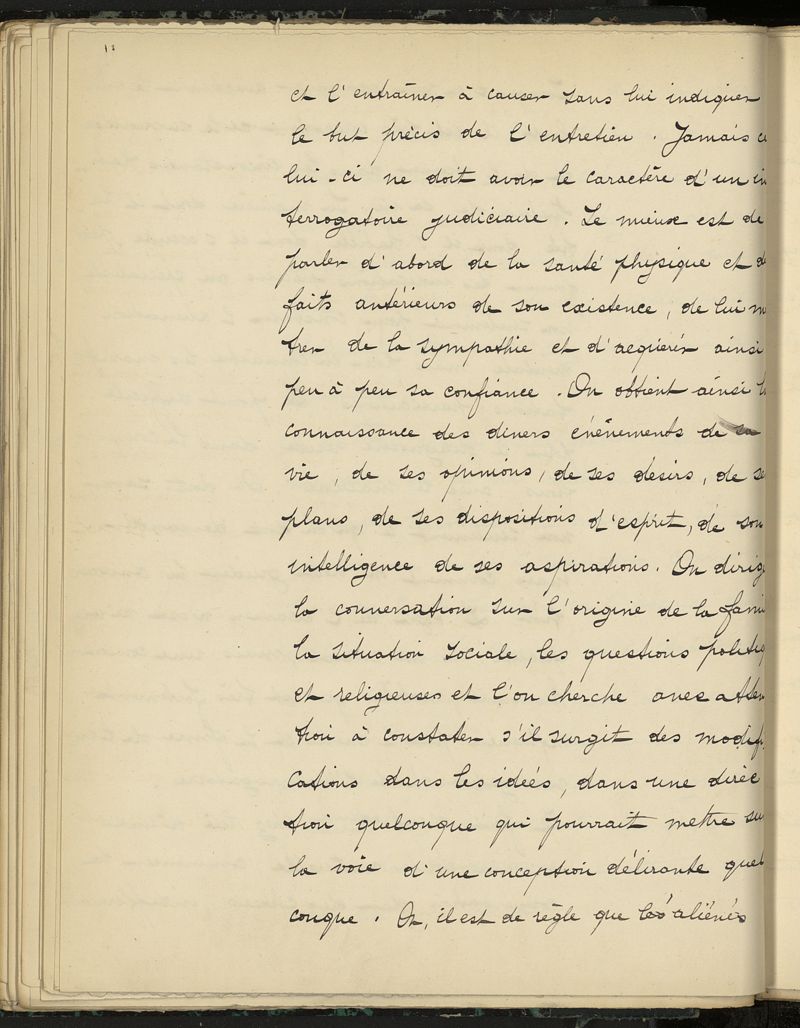 et l'entraîner à causer sans lui indiquer
le but précis de l'entretien. Jamais ce
lui-ci ne doit avoir le caractère d'un in
terrogatoire judiciaire. Le mieux est de
parler d'abord de la santé physique et d
faits antérieurs de son existence, de lui m
trer de la sympathie et d'acquérir ainsi
peu à peu sa confiance. On obtient ainsi l
connaissance des divers événements de sa
vie, de ses opinions, de ses désirs, de se
plans, de ses dispositions d'esprit, de son
intelligence de ses aspirations. On dirig
la conversation sur l'origine de la fami
la situation sociale, les questions politiq
et religieuses et l'on cherche avec atten
tion à constater s'il surgit des modifi
cations dans les idées, dans une direc
tion quelconque qui pourrait mettre sur
la voie d'une conception délirante quel
conque. Or, il est de règle que les aliénés